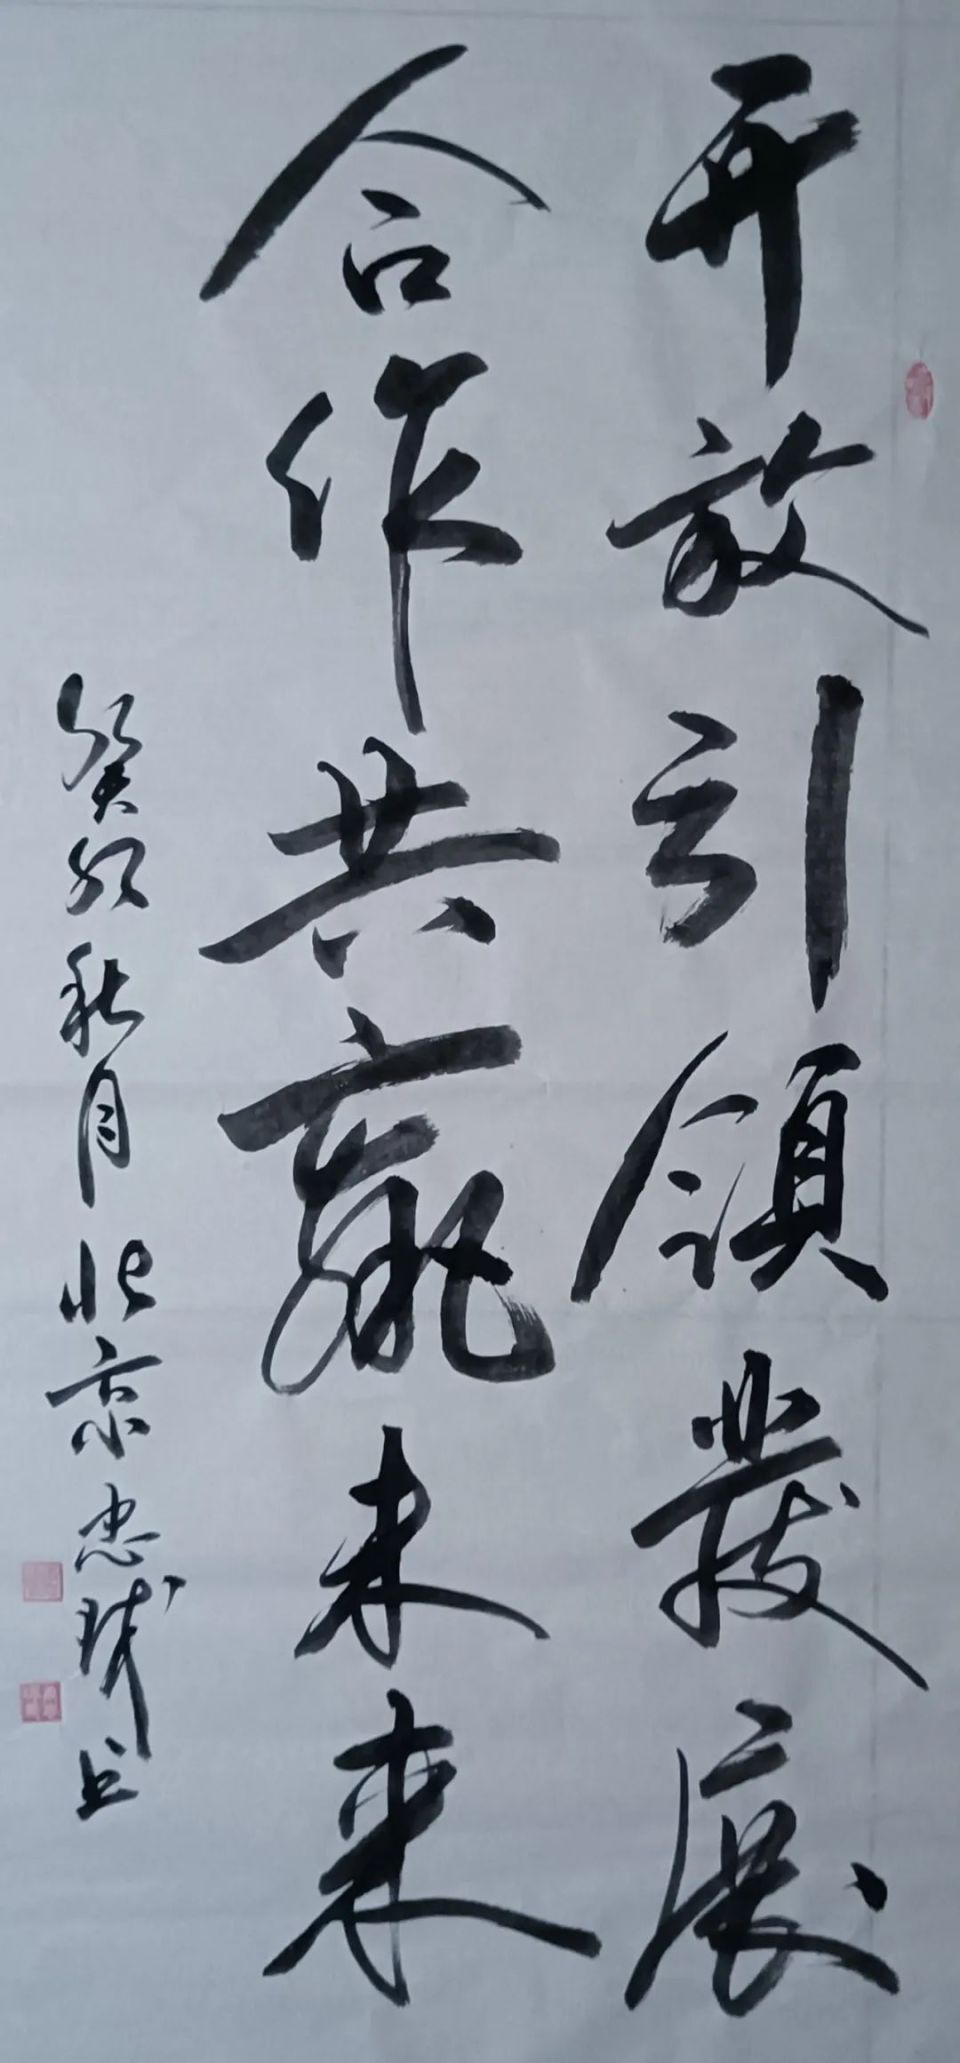 开放引領發展
合作共赢未来
癸卯秋月北京忠城书